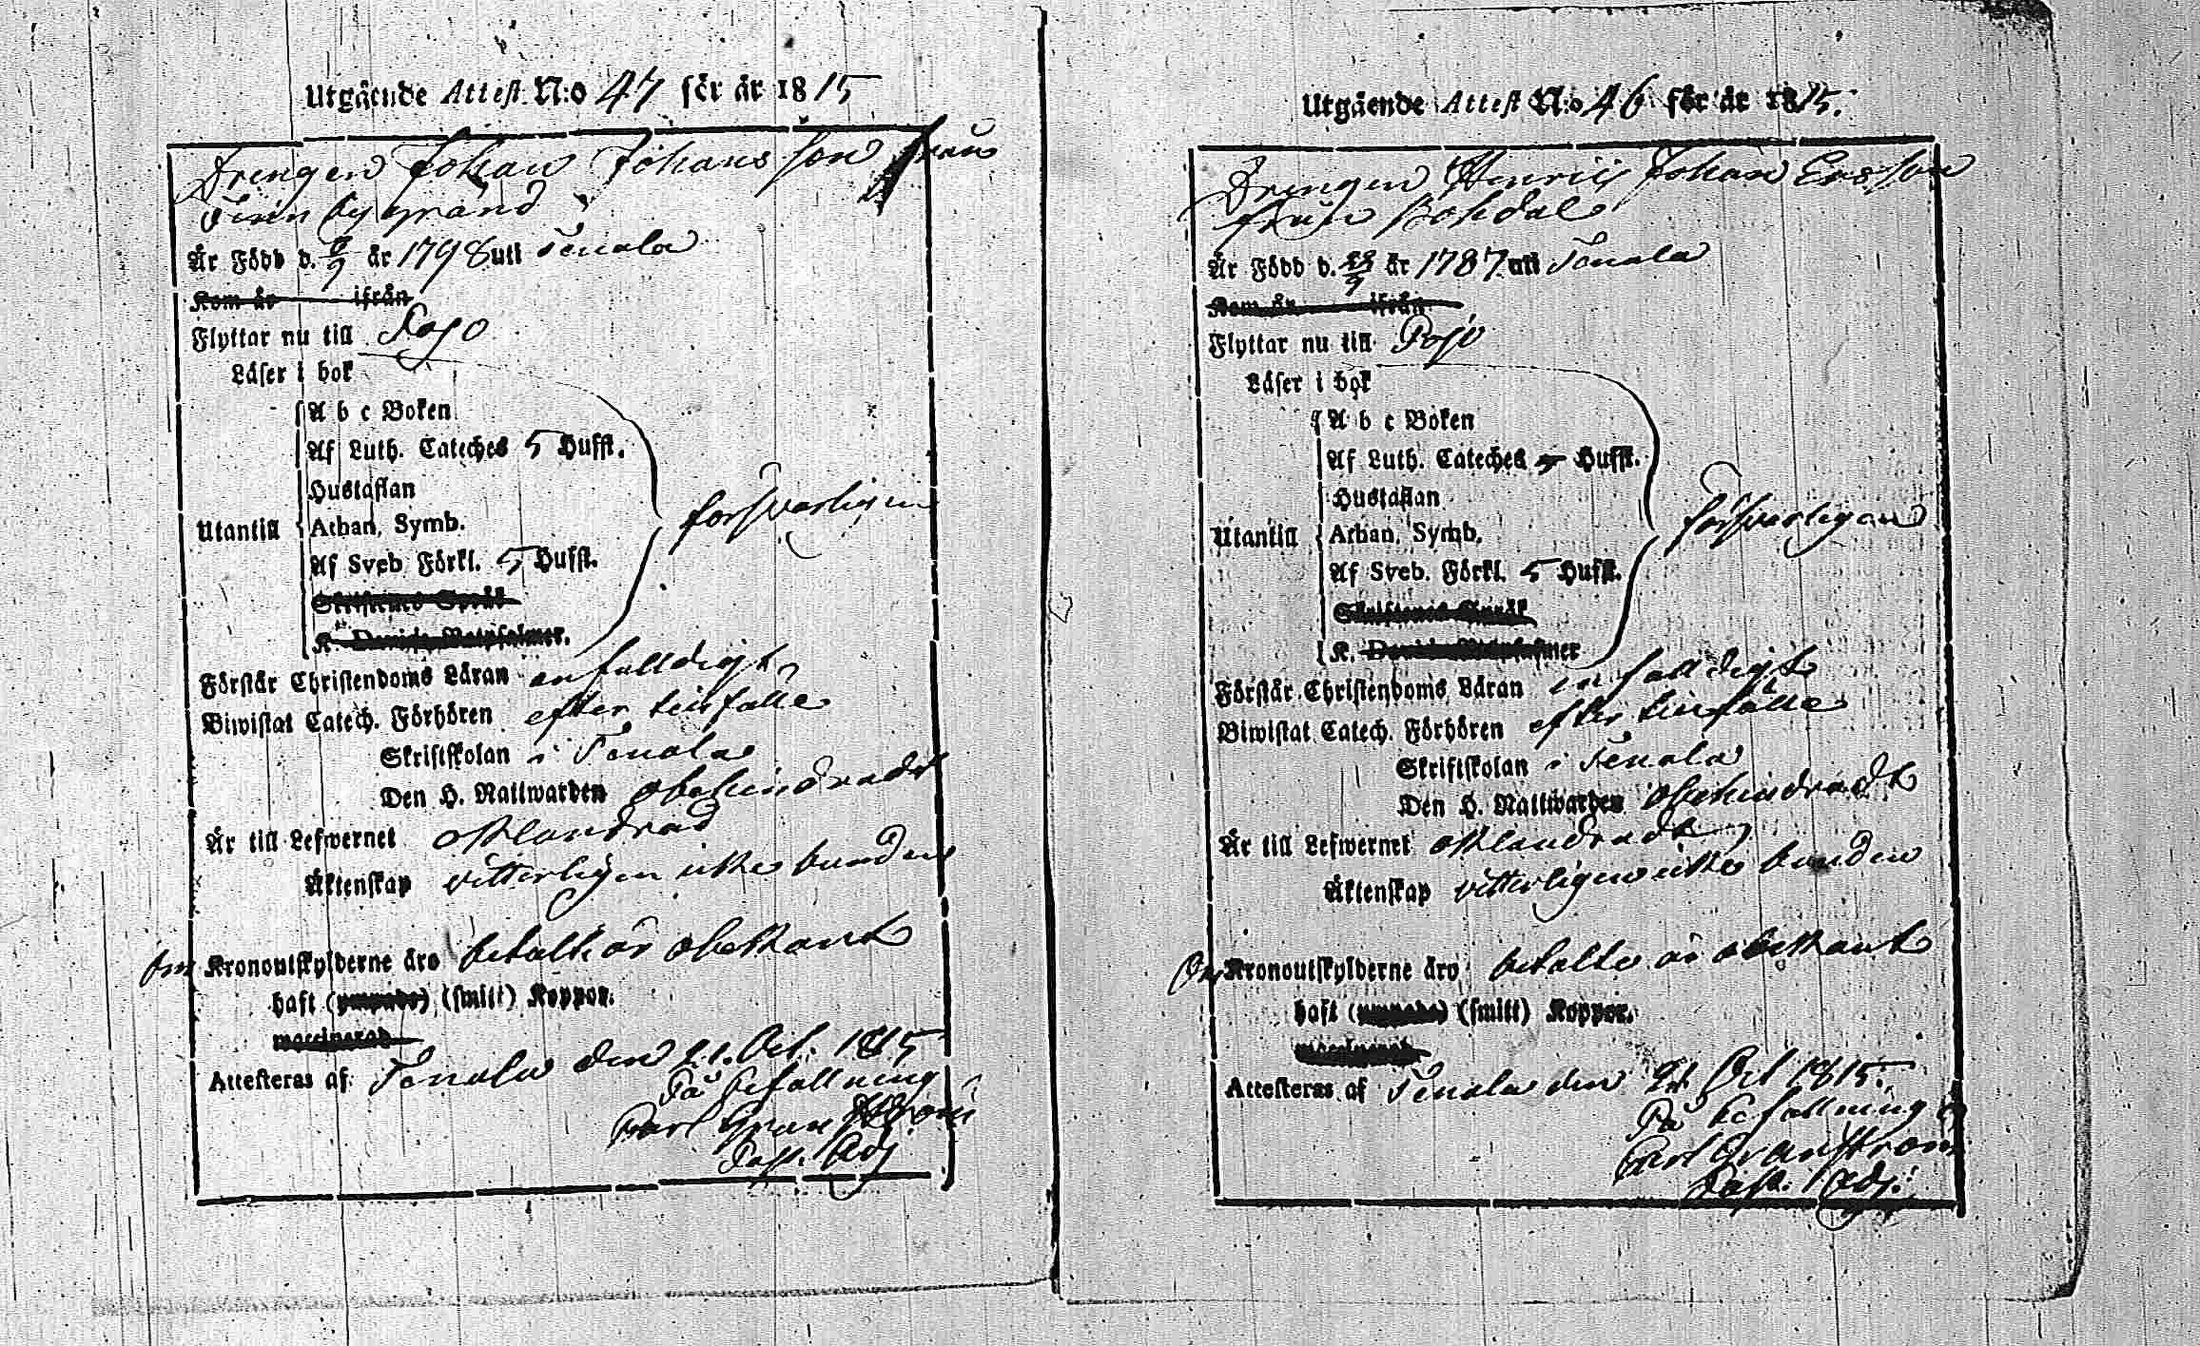 Utgående Attest N:o 47 för år 1815
Drengen Johan Johansson från
Finnbygränd
Är Född d. 6/9 år 1798 uti Tenala
Kom år ifrån
Flyttar nu till Pojo
Läser i bok
A b c Boken
Af Luth. Cateches 5 Hufst.
Hustaflan
Utantill Athan. Symb. försvarligen
Af Sveb. Förkl. 5 Hufst.
Skriftenes Språk
K. Davids Botpsalmer.
Förstår Christendoms Läran enfalldigt
Biwistat Catech. Förhören efter tillfälle
Skriftskolan i Tenala
Den H. Nattwarden obehindradt
Är till Lefwernet oklandrad
Äktenskap vitterligen icke bunden
Om Kronoutskylderne äro betalte är obekant
haft (ympade) (smitt) Koppor.
waccinerad
Attesteras af Tenala den 21. Oct. 1815
På befallning
Carl Granström
Past. Adj.
Utgående Attest N:o 46 för år 1815.
Drengen Henric Johan Ersson
från Bohdal
Är Född d. /9 år 1787 uti Tenala
Kom år ifrån
Flyttar nu till Pojo
Läser i bok
A b c Boken
Af Luth. Cateches 5 Hufst.
Hustaflan
Utantill Athan. Symb. försvarligen
Af Sveb. Förkl. 5 Hufst.
Skriftenes Språk
K. Davids Botpsalmer
Förstår Christendoms Läran enfalldigt
Biwistat Catech. Förhören efter tillfälle
Skriftskolan i Tenala
Den H. Nattwarden obehindradt
Är till Lefwernet oklandradt
Äktenskap vitterligen icke bunden
Om Kronoutskylderne äro betalte är obekant
haft (ympade) (smitt) Koppor.
Attesteras af Tenala den 21 Oct 1815.
På befallning
Carl Granström
Past. Adj.